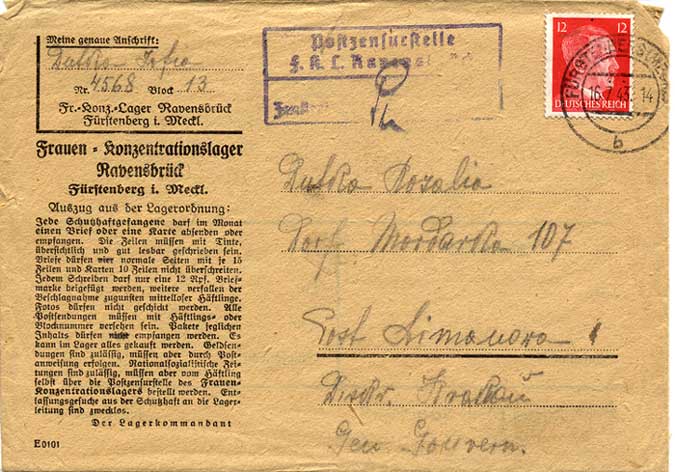 Meine genaue Anschrift:
Dutka Zofia
Nr. 4568 Block 13
Fr.-Konz.-Lager Ravensbrück
Fürstenberg i. Meckl.
Frauen-Konzentrationslager
Ravensbrück
Fürstenberg i. Meckl.
Auszug aus der Lagerordnung:
Jede Schutzhaftgefangene darf im Monat
einen Brief oder eine Karte absenden oder
empfangen. Die Zeilen müssen mit Tinte,
übersichtlich und gut lesbar geschrieben sein.
Briefe dürfen vier normale Seiten mit je 15
Zeilen und Karten 10 Zeilen nicht überschreiten.
Jedem Schreiben darf nur eine 12 Rpf. Brief-
marke beigefügt werden, weitere verfallen der
Beschlagnahme zugunsten mittelloser Häftlinge.
Fotos dürfen nicht geschickt werden. Alle
Postsendungen müssen mit Häftlings- oder
Blocknummer versehen sein. Pakete jeglichen
Inhalts dürfen nicht empfangen werden. Es
kann im Lager alles gekauft werden. Geldsen-
dungen sind zulässig, müssen aber durch Post-
anweisung erfolgen. Nationalsozialistische Zei-
tungen sind zulässig, müssen aber vom Häftling
selbst über die Postzensurstelle des Frauen-
Konzentrationslagers bestellt werden. Ent-
lassungsgesuche aus der Schutzhaft an die Lager-
leitung sind zwecklos.
Der Lagerkommandant
E0101
Postzensurstelle
F. K. L.
12 12
DEUTSCHES REICH
16.7.43. 14
b
Dutka Rozalia
Dorf Mordarka 107
Post Limanova
Distr. Krakau
Gen Gouvern.